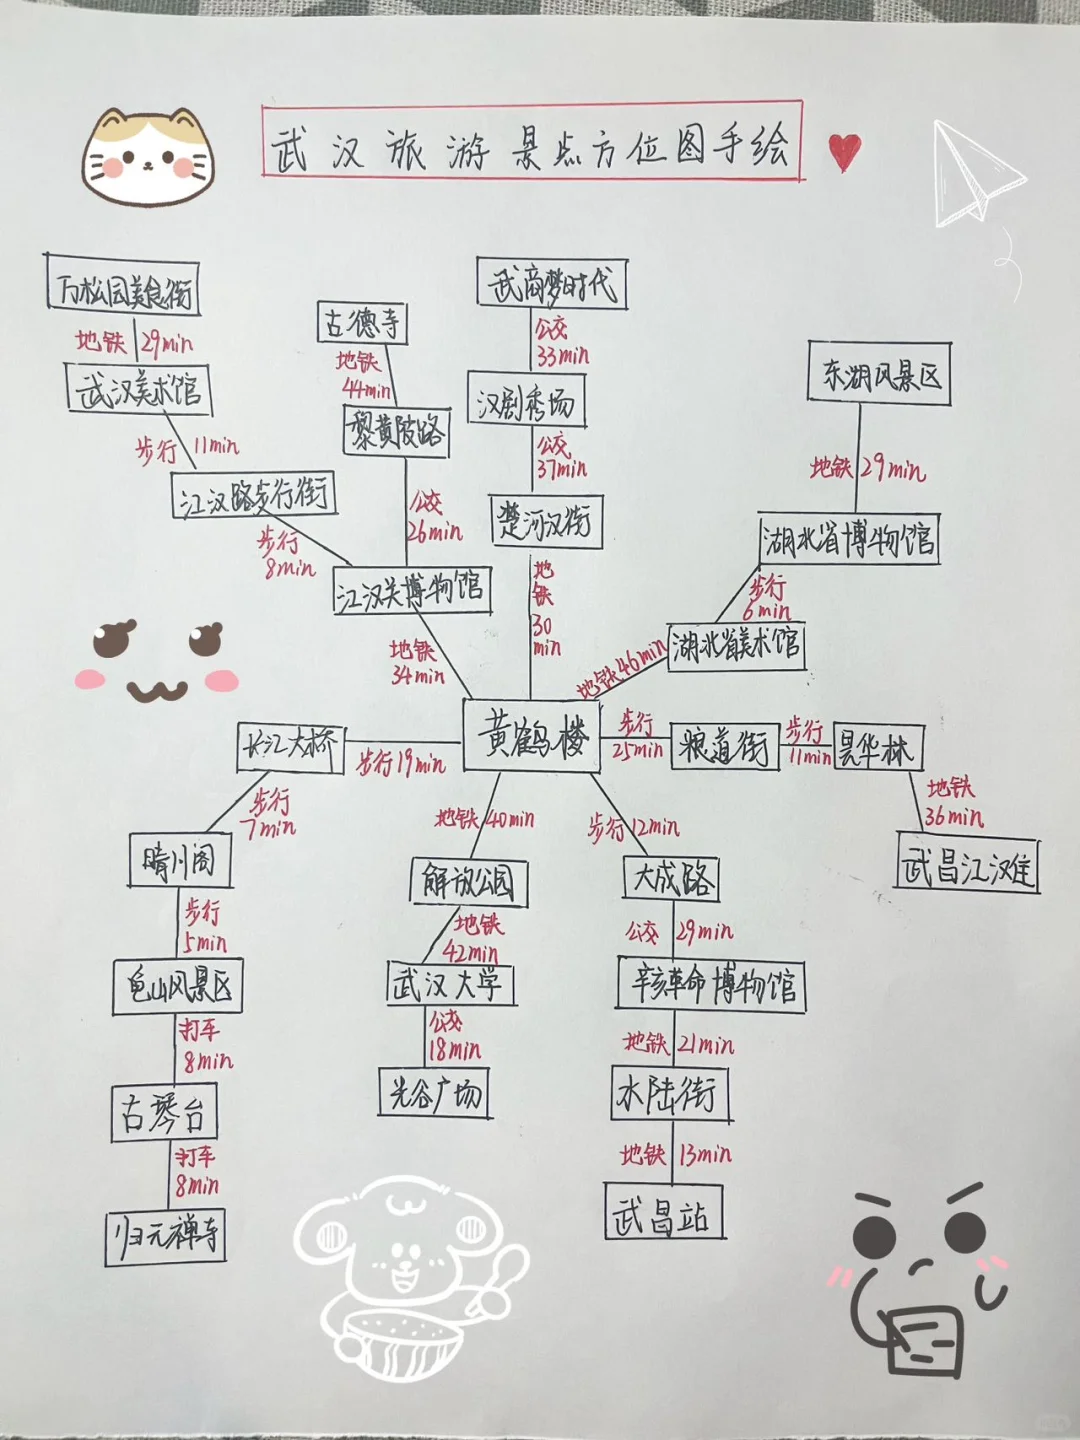 武汉旅游景点方位图手绘
万松园美食街
地铁 29min
武汉美术馆
步行 11min
江汉路步行街
步行
8min
古德寺
地铁
44min
黎黄陂路
公交
26min
江汉关博物馆
地铁
34min
武商梦时代
公交
33min
汉剧秀场
公交
37min
楚河汉街
地
铁
30
min
东湖风景区
地铁 29min
湖北省博物馆
步行
6min
湖北省美术馆
地铁46min
黄鹤楼
长江大桥
步行19min
步行
7min
晴川阁
步行
5min
龟山风景区
打车
8min
古琴台
打车
8min
归元禅寺
地铁 40min
解放公园
地铁
42min
武汉大学
公交
18min
光谷广场
步行12min
大成路
公交 29min
辛亥革命博物馆
地铁 21min
水陆街
地铁 13min
武昌站
步行
25min
粮道街
步行
11min
昙华林
地铁
36min
武昌江汉